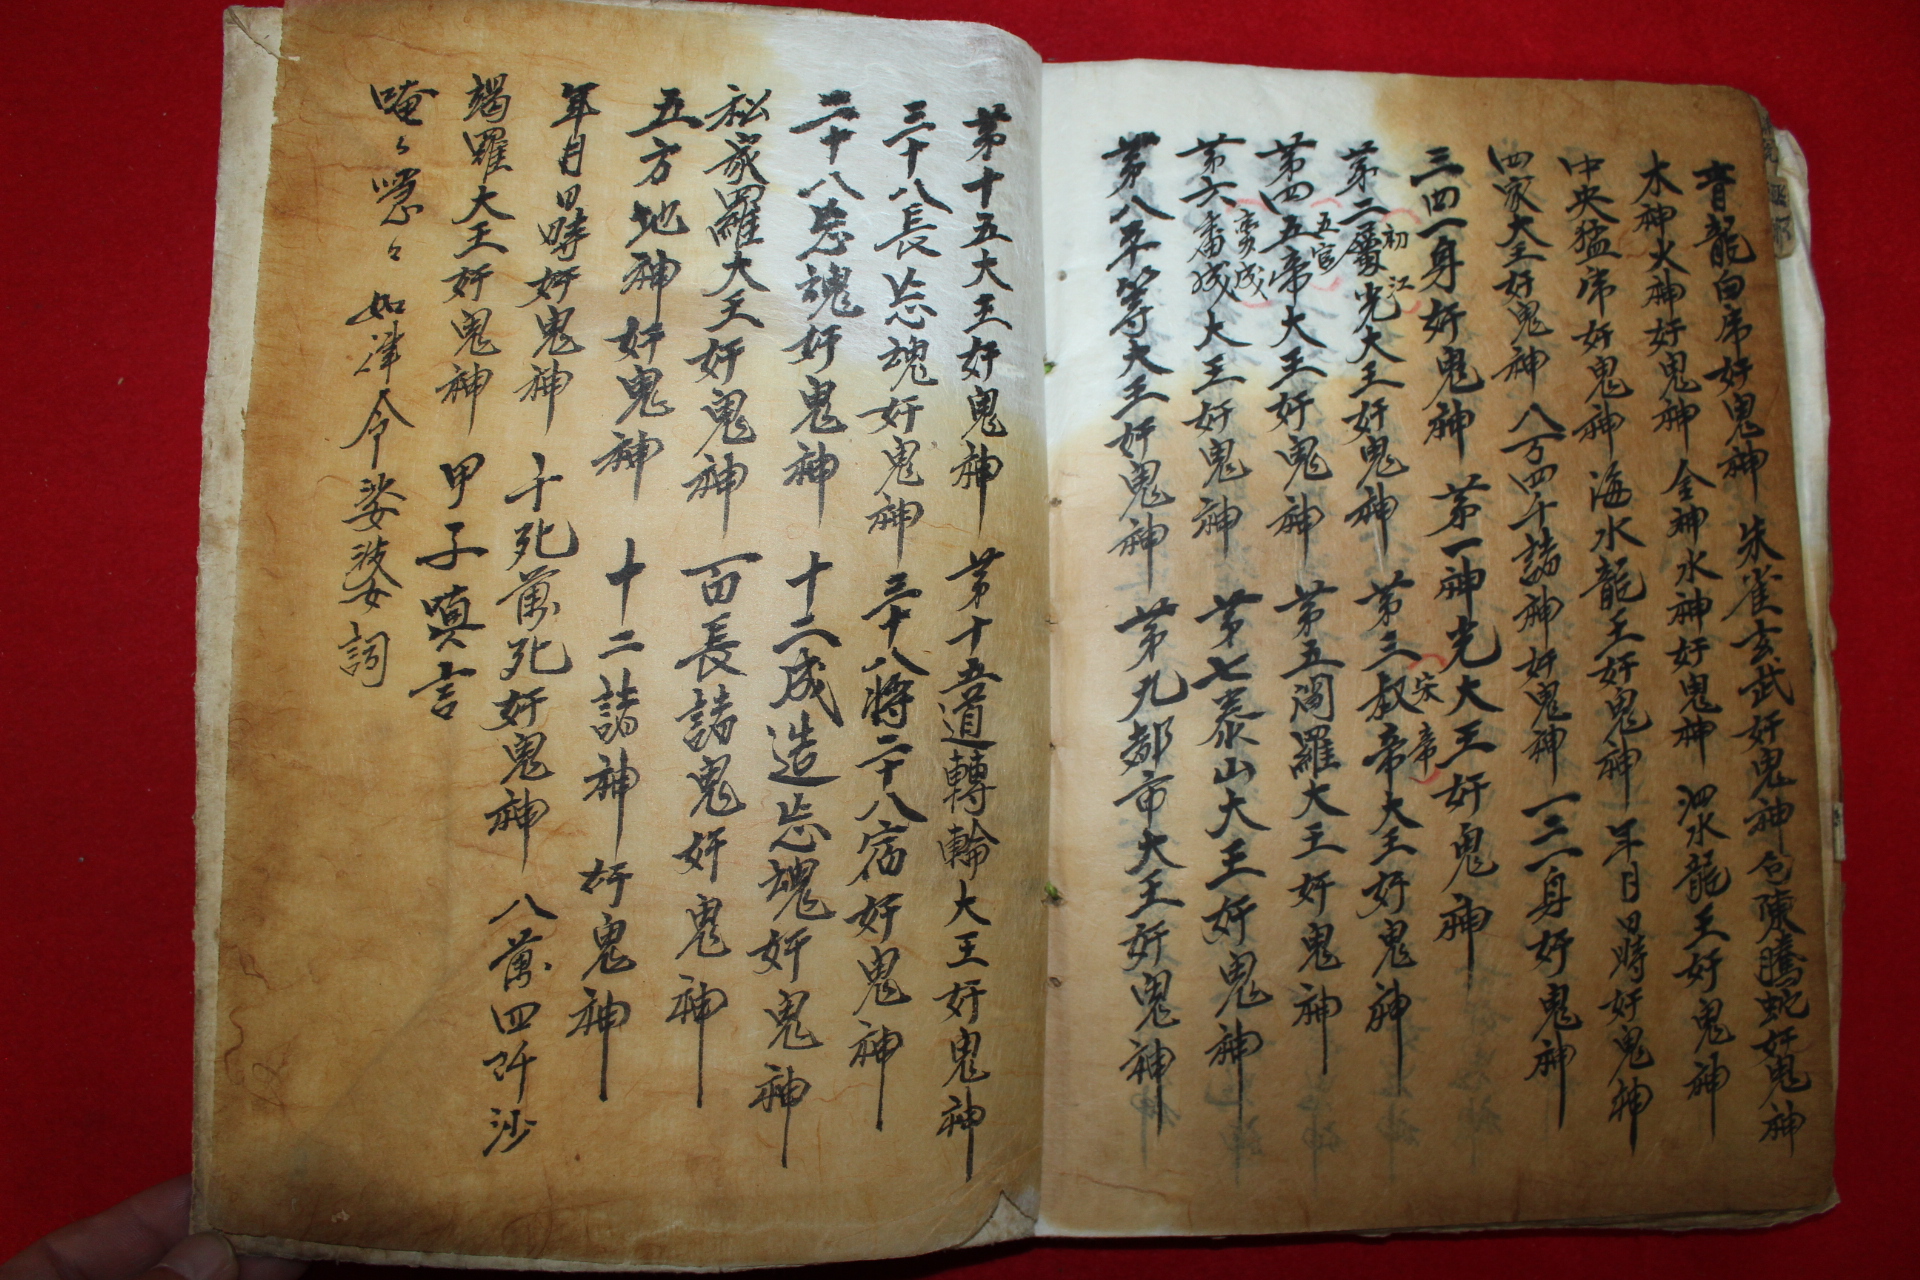 青龍白帍奸鬼神 朱雀玄武奸鬼神 句陳騰蛇奸鬼神
木神火神奸鬼神 金神水神奸鬼神 泗水龍王奸鬼神
中央猛帍奸鬼神 海水龍王奸鬼神 年月日時奸鬼神
四家大王奸鬼神 八万四千諸神奸鬼神 一二一身奸鬼神
三四一身奸鬼神 苐一神光大王奸鬼神
苐二 光大王奸鬼神 苐三叔帝大王奸鬼神
初江
宋帝
苐四五帝大王奸鬼神 苐五閻羅大王奸鬼神
五官
苐六番成大王奸鬼神 苐七泰山大王奸鬼神
变成
苐八平等大王奸鬼神 苐九都市大王奸鬼神
苐十五大王奸鬼神 苐十五道轉輪大王奸鬼神
三十八長 魂奸鬼神 三十八將二十八宿奸鬼神
二十八 魂奸鬼神 十二成造 魂奸鬼神
松家四羅大王奸鬼神 百長諸鬼奸鬼神
五方地神奸鬼神 十二諸神奸鬼神
年月日時奸鬼神 千死萬死奸鬼神 八萬四 沙
竭羅大王奸鬼神 甲子嗔言
唵々 々 如津令娑婆訶